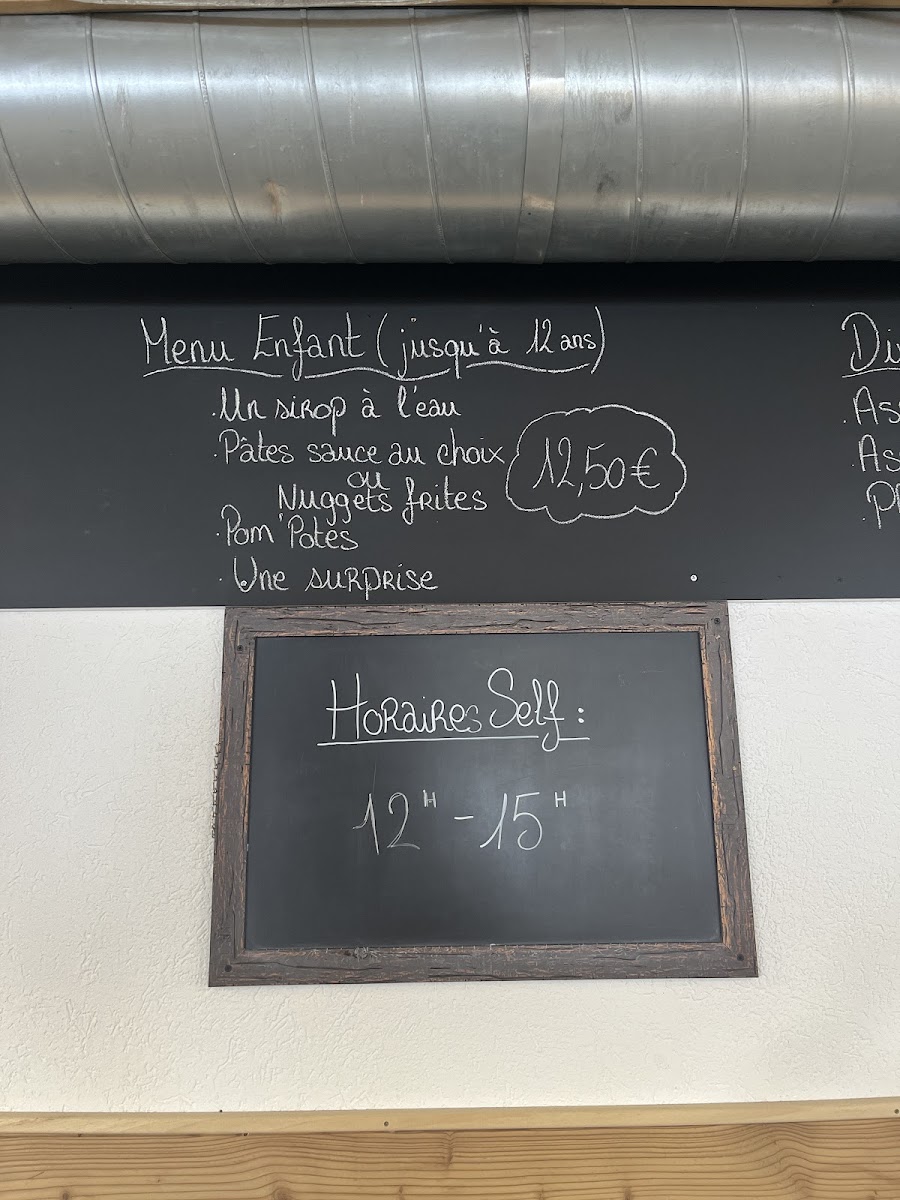 Menu Enfant (jusqu'à 12 ans)
· Un sirop à l'eau
· Pâtes sauce au choix
ou
Nuggets frites
· Pom'Potes
· Une surprise
12,50€
Horaires Self :
12H - 15H